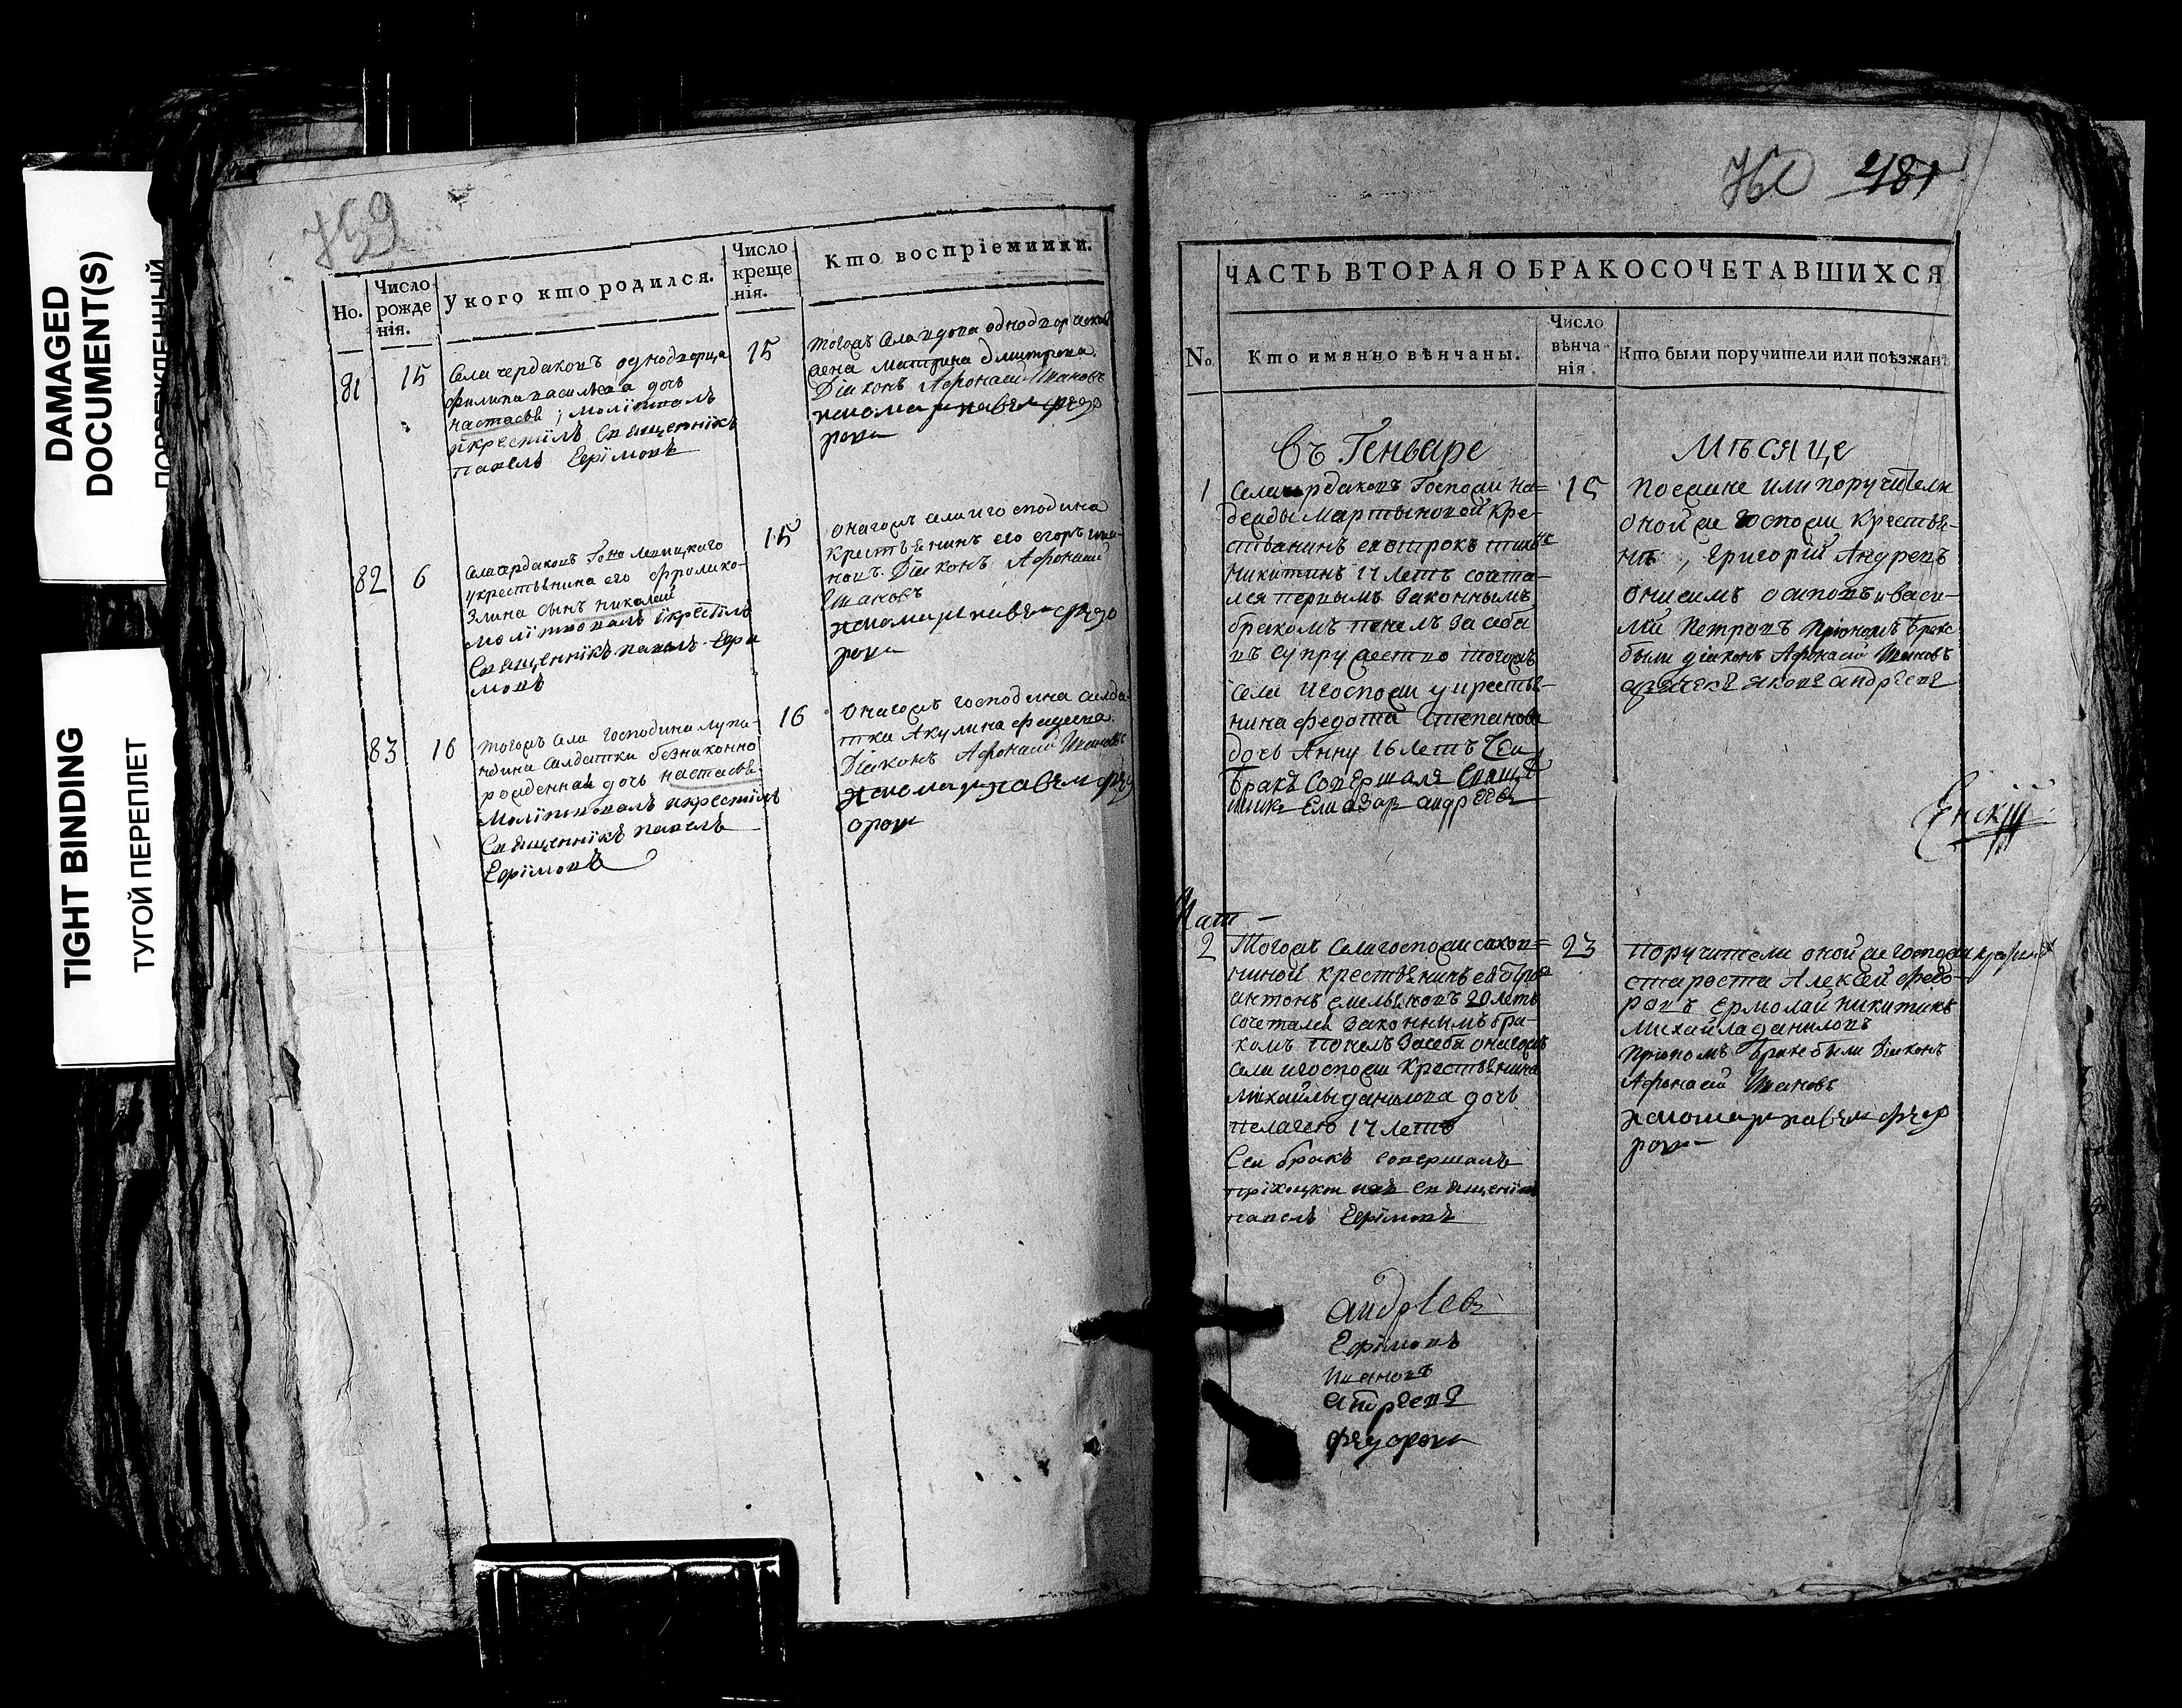 DAMAGED
DOCUMENT(S)
TIGHT BINDING
ТУГОЙ ПЕРЕПЛЕТ
759
Но.
Число рожде нія.
У кого кто родился.
Число креще нія.
Кто воспріемники.
81
15
Села чердаковъ однодворца
филипа василева дочь
настасья; молитвовалъ
икрестилъ Священникъ
павелъ Ефимовъ
15
тогожъ села вдова однодворческая
жена матрина дмитрева
Діаконъ Афонасій Ивановъ
82
6
укрестьянина его фрола ко-
злина сынъ николай
молитвовалъ икрестилъ
Священникъ павелъ Ефи
мовъ
15
онагожъ села игосподина
крестьянинъ его егоръ ива-
новъ Діаконъ Афонасій
Ивановъ
83
16
тогожъ села господина лупа-
ндина салдатки беззаконно
рожденная дочь настасья
молитвовалъ икрестилъ
Священникъ павелъ
Ефимовъ
16
онагожъ господина салда-
тка Акулина фадеева
Діаконъ Афонасій Ивановъ
760 481
ЧАСТЬ ВТОРАЯ О БРАКОСОЧЕТАВШИХСЯ
No.
Кто имянно вѣнчаны.
Число вѣнча нія.
Кто были поручители или поѣзжане
Въ Генваре
Мѣсяце
1
Села чердаковъ Госпожи На-
дежды Мартыновой кре-
стьянинъ ея отрокъ
Никитинъ 17 летъ сочета-
лся первымъ законнымъ
бракомъ понялъ за себя
въ супружество тогожъ
села игоспожи укрестья-
нина федота Степанова
дочь Анну 16 летъ Сей
бракъ Совершалъ Свяще
нникъ Елиазаръ андреевъ
15
поезжане или поручители
оной же госпожи крестья-
не, Григорій Андреевъ
онисимъ осиповъ иваси-
лій Петровъ приономъ браке
были діаконъ Афонасій Ивановъ
яковъ андреевъ
Енскій
2
Тогожъ села госпожи
крестьянинъ ея
антонъ емельяновъ 20 летъ
сочетался законнымъ бра-
комъ понялъ засебя онагожъ
села игоспожи крестьянина
михайлы данилова дочь
пелагею 17 летъ
Сей бракъ совершалъ
Священникъ
павелъ Ефимовъ
23
поручители оной же госпожи
староста Алексей федо
ровъ Ермолай никитинъ
михайла даниловъ
приономъ браке были Діаконъ
Афонасій Ивановъ
Андреевъ
Ефимовъ
Ивановъ
андреевъ
федоровъ